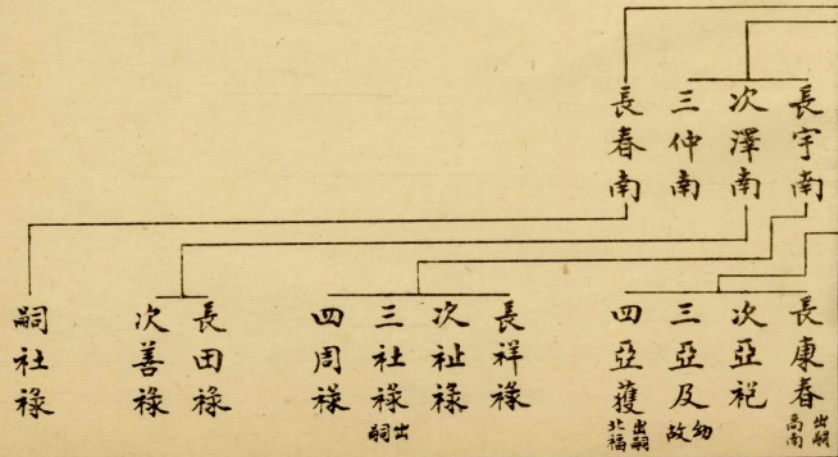 長宇南
次澤南
三仲南
長春南
長康春 出嗣高南
次亞祀
三亞及 幼故
四亞獲 出嗣北福
長祥祿
次祉祿
三社祿 出嗣
四周祿
長田祿
次善祿
嗣社祿